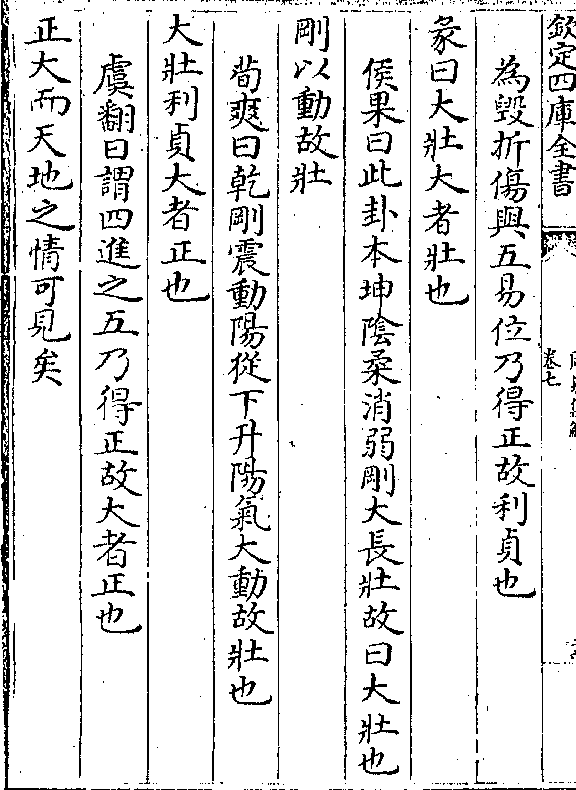 欽定四庫全書
卷七
為毀折傷與五易位乃得正故利貞也
彖曰大壯大者壯也
侯果曰此卦本坤陰柔消弱剛大長壯故曰大壯也
剛以動故壯
荀爽曰乾剛震動陽從下升陽氣大動故壯也
大壯利貞大者正也
虞翻曰謂四進之五乃得正故大者正也
正大而天地之情可見矣